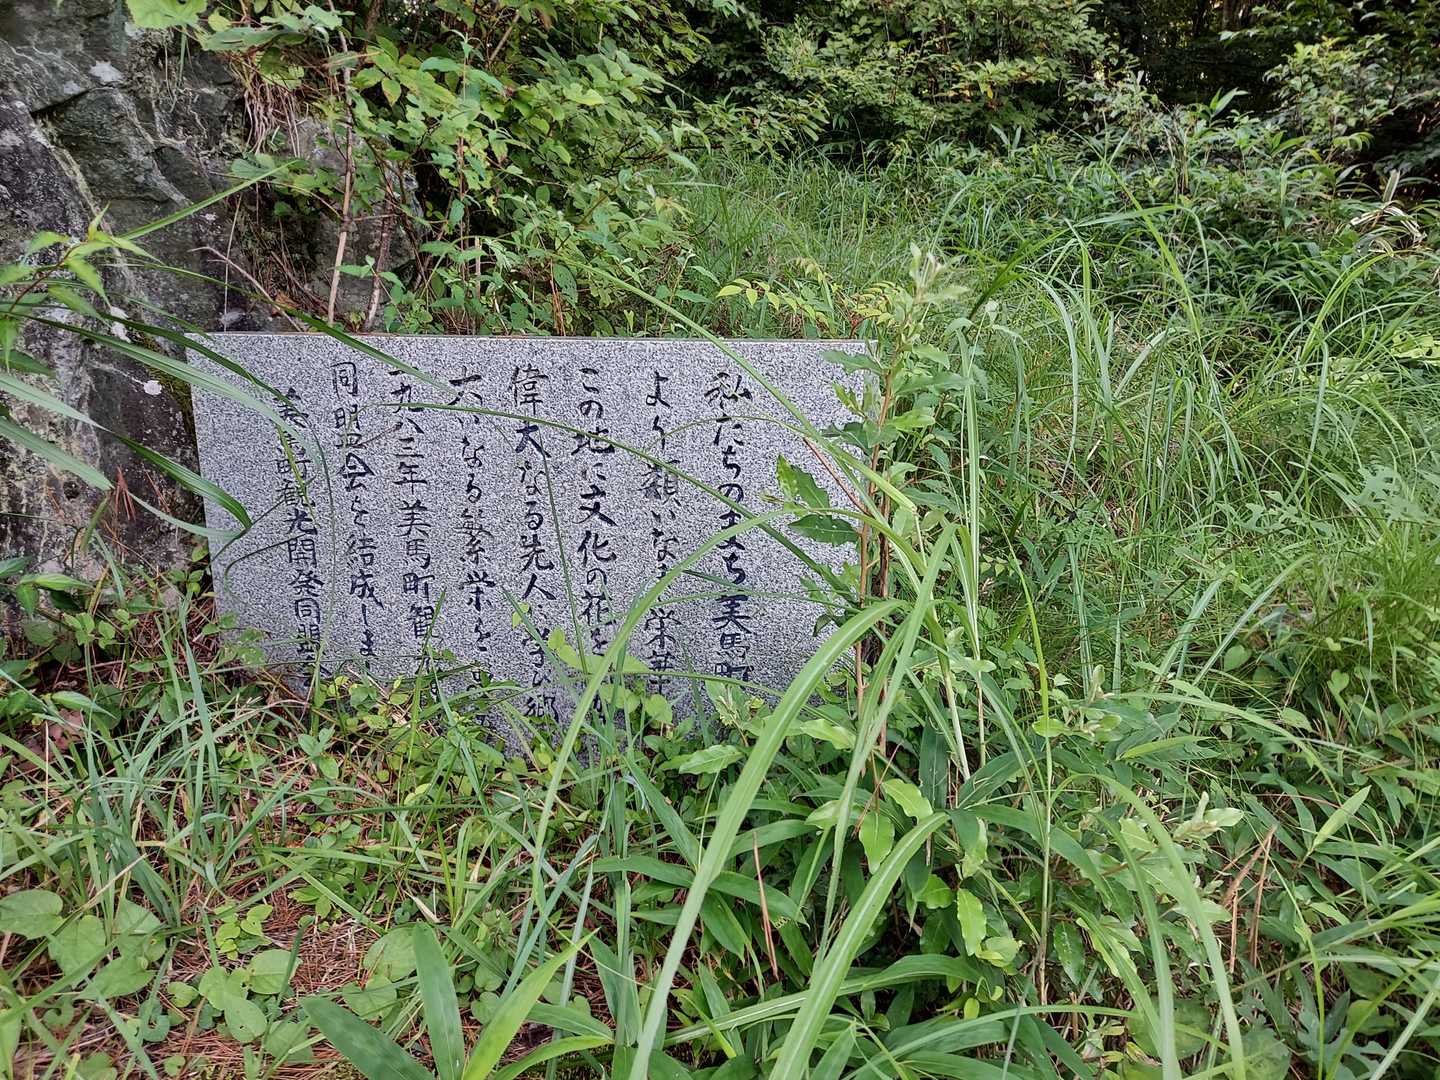 私たちのまち美馬町
より願いなる栄華
この地に文化の花を
偉大なる先人 学び郷
大いなる繁栄を
一九八三年美馬町観光
同明会を結成しま
美馬町観光開発同明会